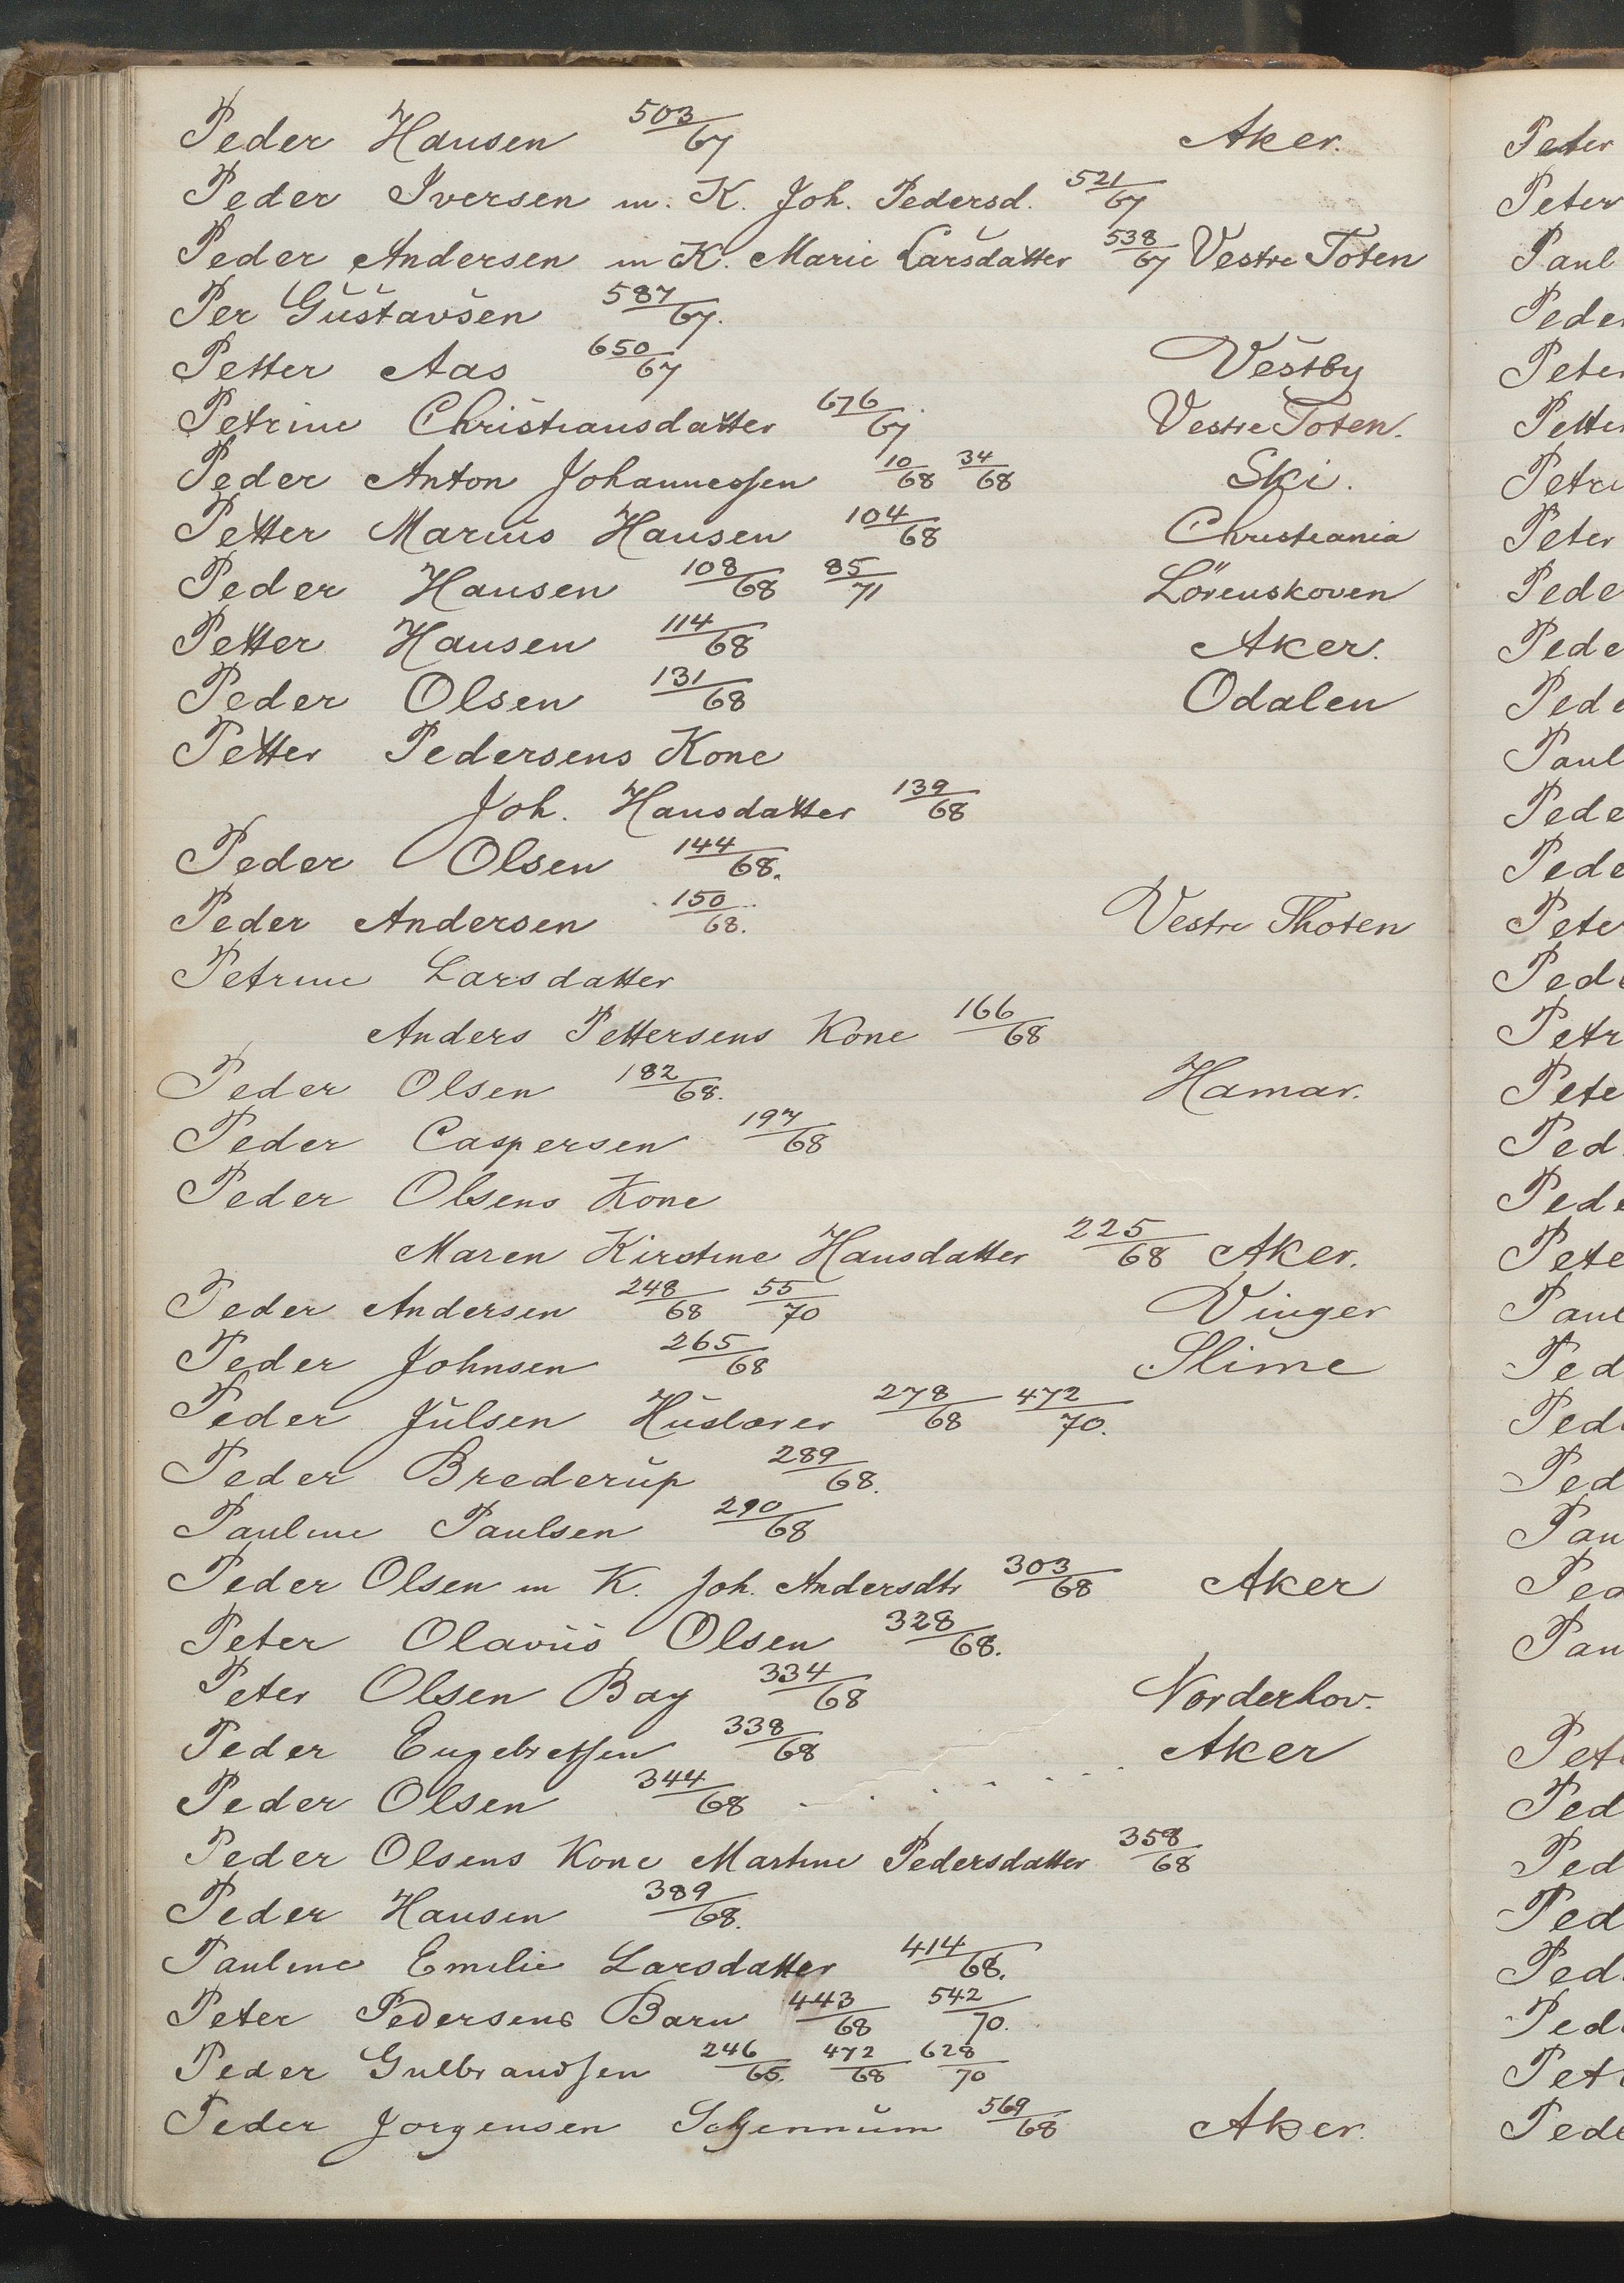 Peder Hansen 503/67 Aker.
Peder Iversen m. K. Joh. Pedersd. 521/67
Peder Andersen m K. Marie Larsdatter 538/67 Vestre Toten
Per Gustavsen 587/67.
Petter Aas 650/67 Vestby
Petrine Christiansdatter 676/67 Vestre Toten.
Peder Anton Johannessen 10/68 34/68 Ski.
Petter Marius Hansen 104/68 Christiania
Peder Hansen 108/68 85/71 Lörenskoven
Petter Hansen 114/68 Aker.
Peder Olsen 131/68 Odalen
Petter Pedersens Kone
Joh. Hansdatter 139/68
Peder Olsen 144/68.
Peder Andersen 150/68. Vestre Thoten
Petrine Larsdatter
Anders Pettersens Kone 166/68
Peder Olsen 182/68. Hamar.
Peder Caspersen 197/68
Peder Olsens Kone
Maren Kirstine Hansdatter 225/68 Aker.
Peder Andersen 248/68 55/70 Vinger
Peder Johnsen 265/68 Slime
Peder Julsen Huslærer 278/68 472/70.
Peder Brederup 289/68.
Pauline Paulsen 290/68
Peder Olsen m K. Joh. Andersdtr 303/68 Aker
Peter Olavus Olsen 328/68.
Peter Olsen Bay 334/68 Norderhov.
Peder Engebretsen 338/68 Aker
Peder Olsen 344/68
Peder Olsens Kone Martine Pedersdatter 358/68
Peder Hansen 389/68.
Pauline Emilie Larsdatter 414/68.
Peter Pedersens Barn 443/68 542/70.
Peder Gulbrandsen 246/65. 472/68 628/70
Peder Jorgensen 569/68 Aker.
Peter
Peter
Paul